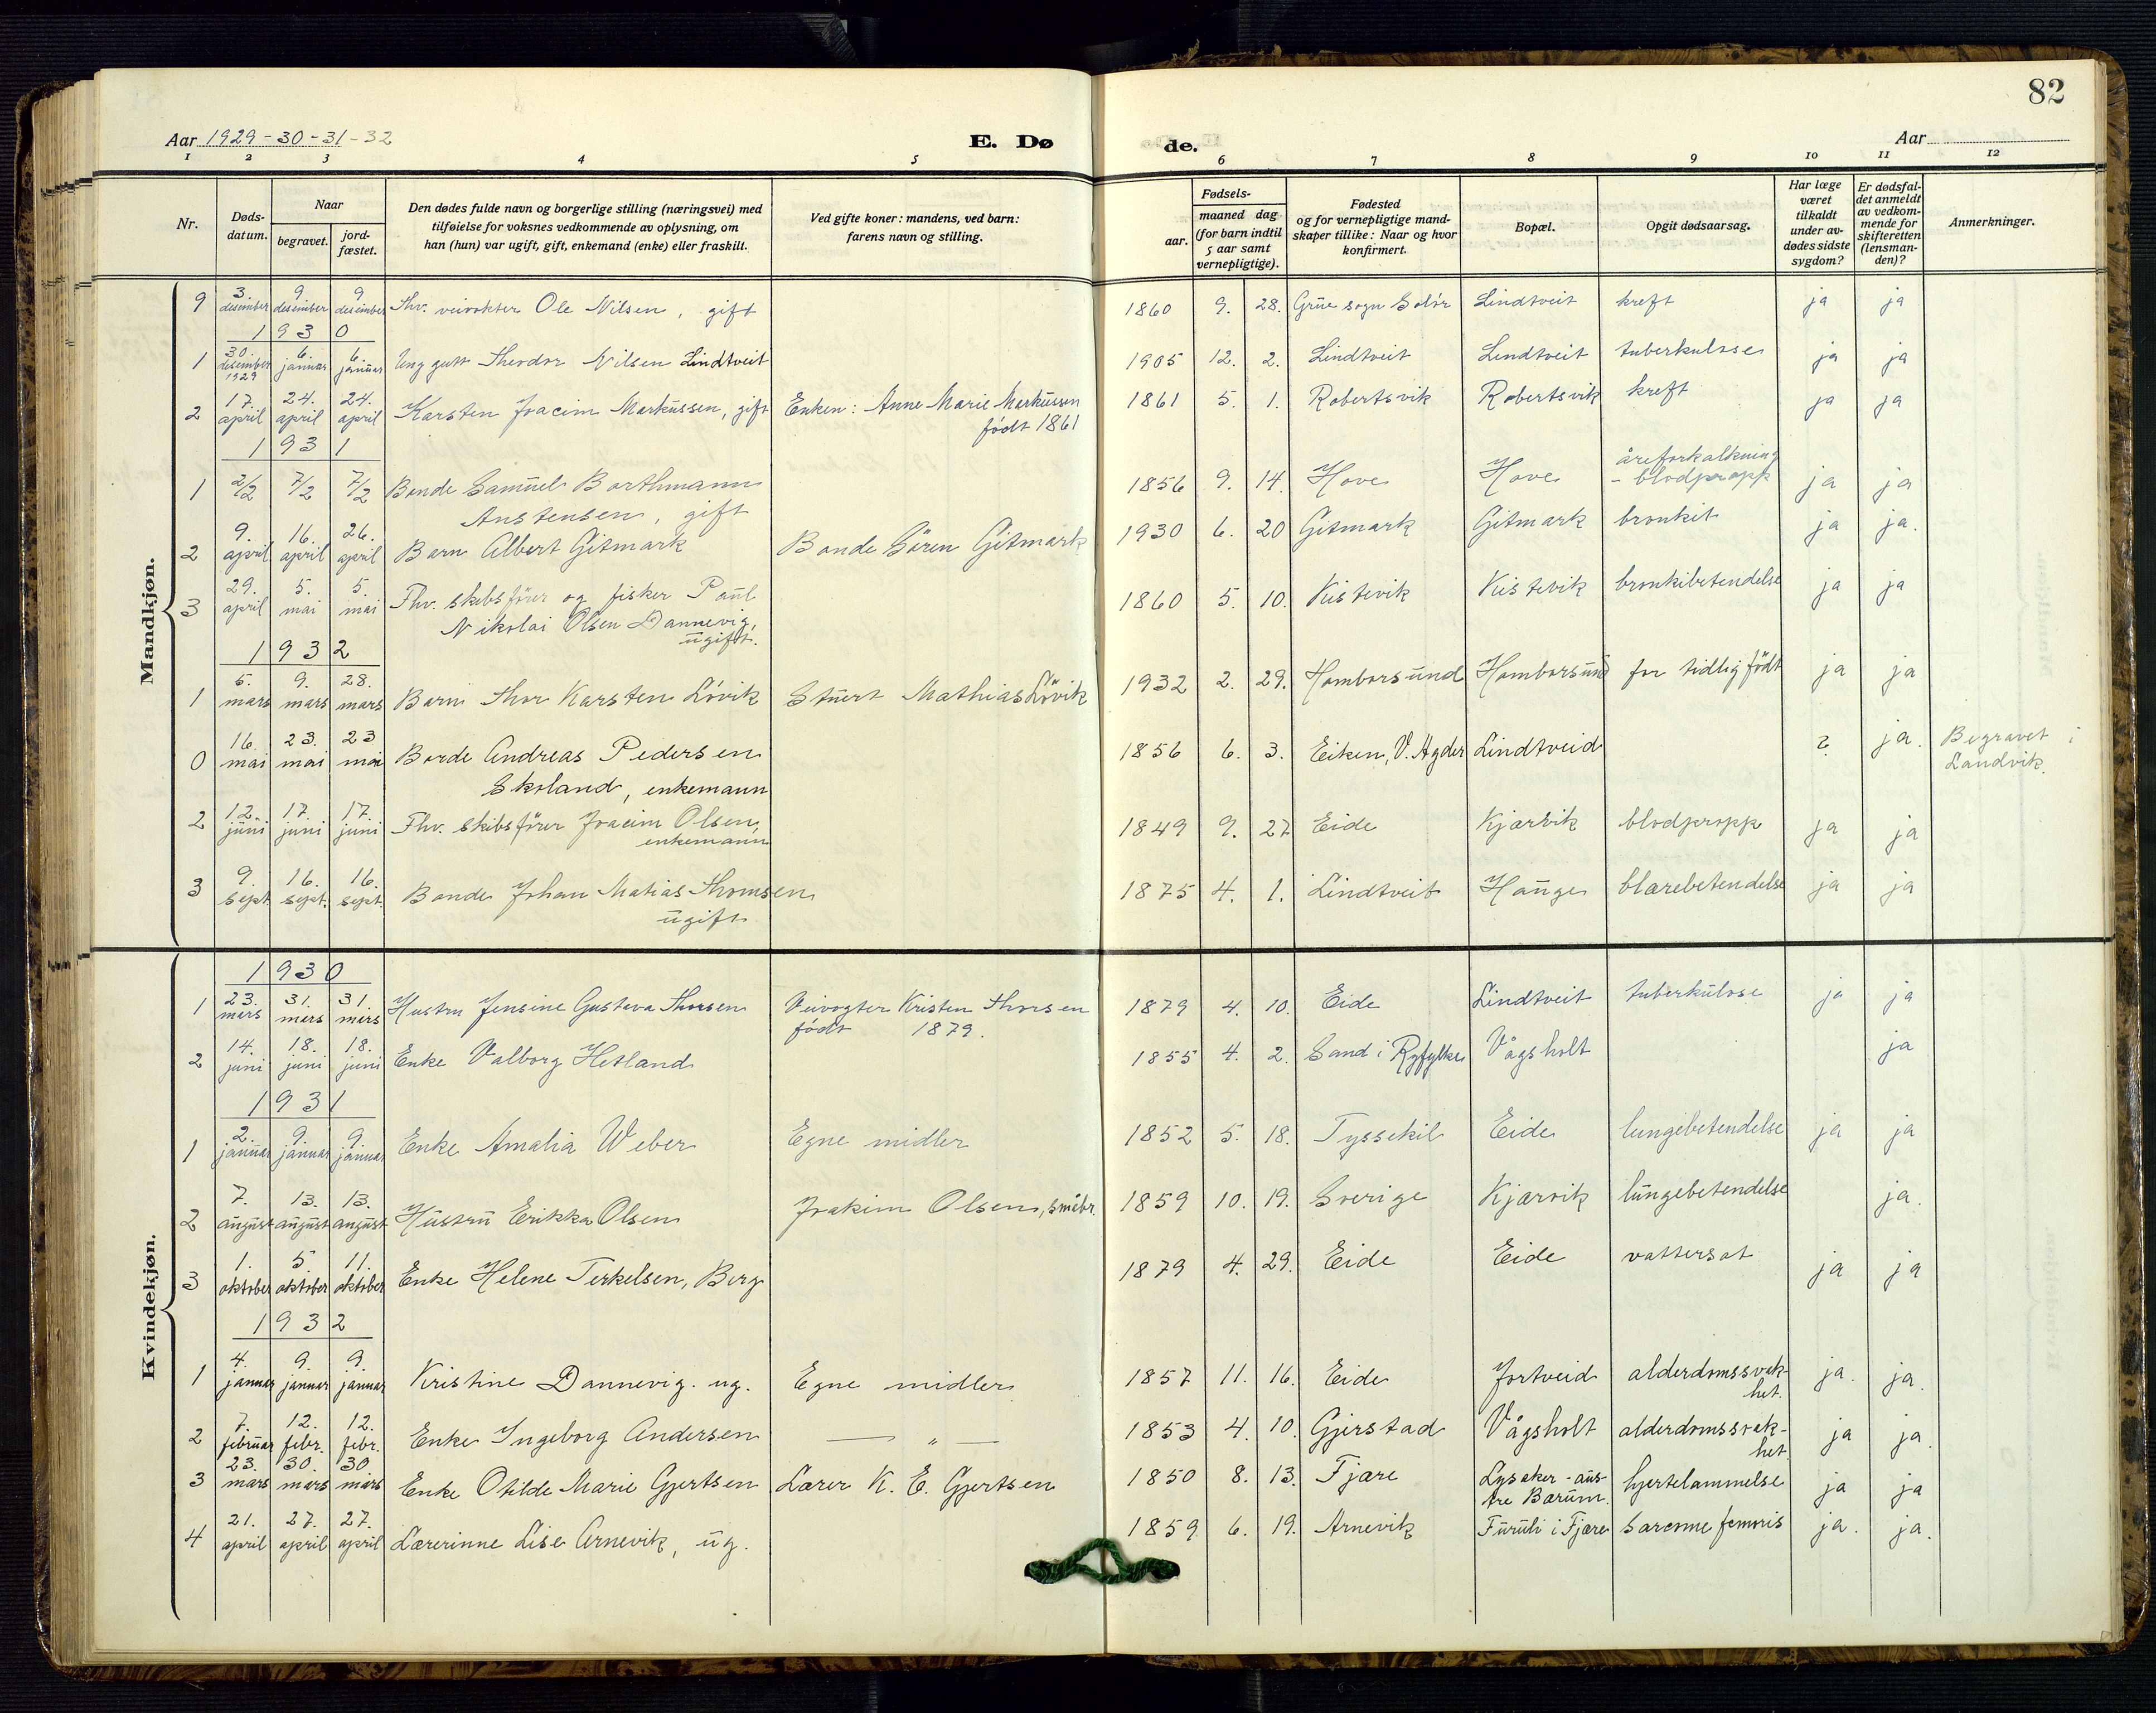 82
Aar 1929-30-31-32 E. Dø de. Aar
1 2 3 4 5 6 7 8 9 10 11 12
Nr. Døds-datum. Naar begravet. jord-fæstet. Den dødes fulde navn og borgerlige stilling (næringsvei) med tilføielse for voksnes vedkommende av oplysning, om han (hun) var ugift, gift, enkemand (enke) eller fraskilt. Ved gifte koner: mandens, ved barn: farens navn og stilling. Fødsels- aar. maaned dag (for barn indtil 5 aar samt vernepligtige). Fødested og for vernepligtige mand-skaper tillike: Naar og hvor konfirmert. Bopæl. Opgit dødsaarsag. Har læge været tilkaldt under av-dødes sidste sygdom? Er dødsfal-det anmeldt av vedkom-mende for skifteretten (lensman-den)? Anmerkninger.
Mandkjøn.
9 3. desember 9 desember 9 desember Fhv. veivokter Ole Nilsen, gift 1860 9. 28. Grue sogn Solør Lindtveit kreft ja ja
1930
1 30. desember 1929 6. januar 6. januar Ung gutt Theodor Nilsen Lindtveit 1905 12. 2. Lindtveit Lindtveit tuberkulose ja ja
2 17. april 24. april 24. april Karsten Joacim Markussen, gift Enken: Anne Marie Markussen 1861 5. 1. Robertsvik Robertsvik kreft ja ja
født 1861
1931
1 2/2 7/2 7/2 Bonde Samuel Borthmann 1856 9. 14. Hove Hove åreforkalkning - blodpropp ja ja
Anstensen, gift
2 9. april 16. april 26. april Barn Albert Gitmark Bonde Sören Gitmark 1930 6. 20 Gitmark Gitmark bronkit ja ja.
3 29. april 5. mai 5. mai Fhv. skibsfører og fisker Paul 1860 5. 10. Kistevik Kistevik bronkibetendelse ja ja
Nikolai Olsen Dannevig,
ugift.
1932
1 5. mars 9. mars 28. mars Barn Thor Karsten Lövik Stuert Mathias Lövik 1932 2. 29. Homborsund Homborsund for tidlig født ja ja
0 16. mai 23. mai 23 mai Bonde Andreas Pedersen 1856 6. 3. Eiken, V. Agder Lindtveid ? ja. Begravet i Landvik.
Skoland, enkemann
2 12. juni 17. juni 17. juni Fhv. skibsfører Joacim Olsen, 1849 9. 27 Eide Kjærvik blodpropp ja ja
enkemann
3 9. sept. 16. sept. 16. sept. Bonde Johan Matias Thomsen 1875 4. 1. Lindtveit Hauge blærebetendelse ja ja
ugift
Kvindekjøn.
1930
1 23. mars 31. mars 31. mars Hustru Jensine Gustava Thorsen Veivogter Kristen Thorsen 1879 4. 10. Eide Lindtveit tuberkulose ja ja
født 1879.
2 14. juni 18. juni 18. juni Enke Valborg Hetland 1855 4. 2. Sand i Ryfylke Vågsholt ja
1931
1 2. januar 9. januar 9. januar Enke Amalia Weber Egne midler 1852 5. 18. Tyssekil Eide lungebetendelse ja ja
2 7. august 13. august 13. august Hustru Erikka Olsen Joakim Olsen, småbr. 1859 10. 19. Sverige Kjærvik lungebetendelse ja.
3 1. oktober 5. oktober 11. oktober Enke Helene Terkelsen, Berg 1879 4. 29. Eide Eide vattersot ja ja
1932
1 4. januar 9. januar 9. januar Kristine Dannevig. ug. Egne midler 1857 11. 16. Eide Jortveid alderdomssvak-het. ja. ja.
2 7. februar 12. febr. 12. febr. Enke Ingeborg Andersen — „ — 1853 4. 10. Gjerstad Vågsholt alderdomssvak-het ja ja.
3 23. mars 30. mars 30 mars Enke Otilde Marie Gjertsen Lærer K. E. Gjertsen 1850 8. 13. Fjære Lysaker - aus-tre Bærum. hjertelammelse ja ja
4 21. april 27. april 27. april Lærerinne Lise Arnevik, ug. 1859 6. 19. Arnevik Furuli i Fjære femoris ja. ja.